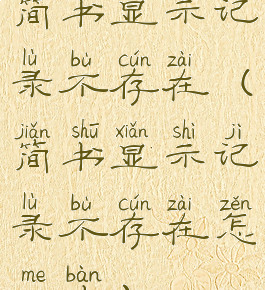 简书显示记
lù bù cún zài
录不存在(
jiǎn shū xiǎn shì jì
简书显示记
lù bù cún zài zěn
录不存在怎
me bàn